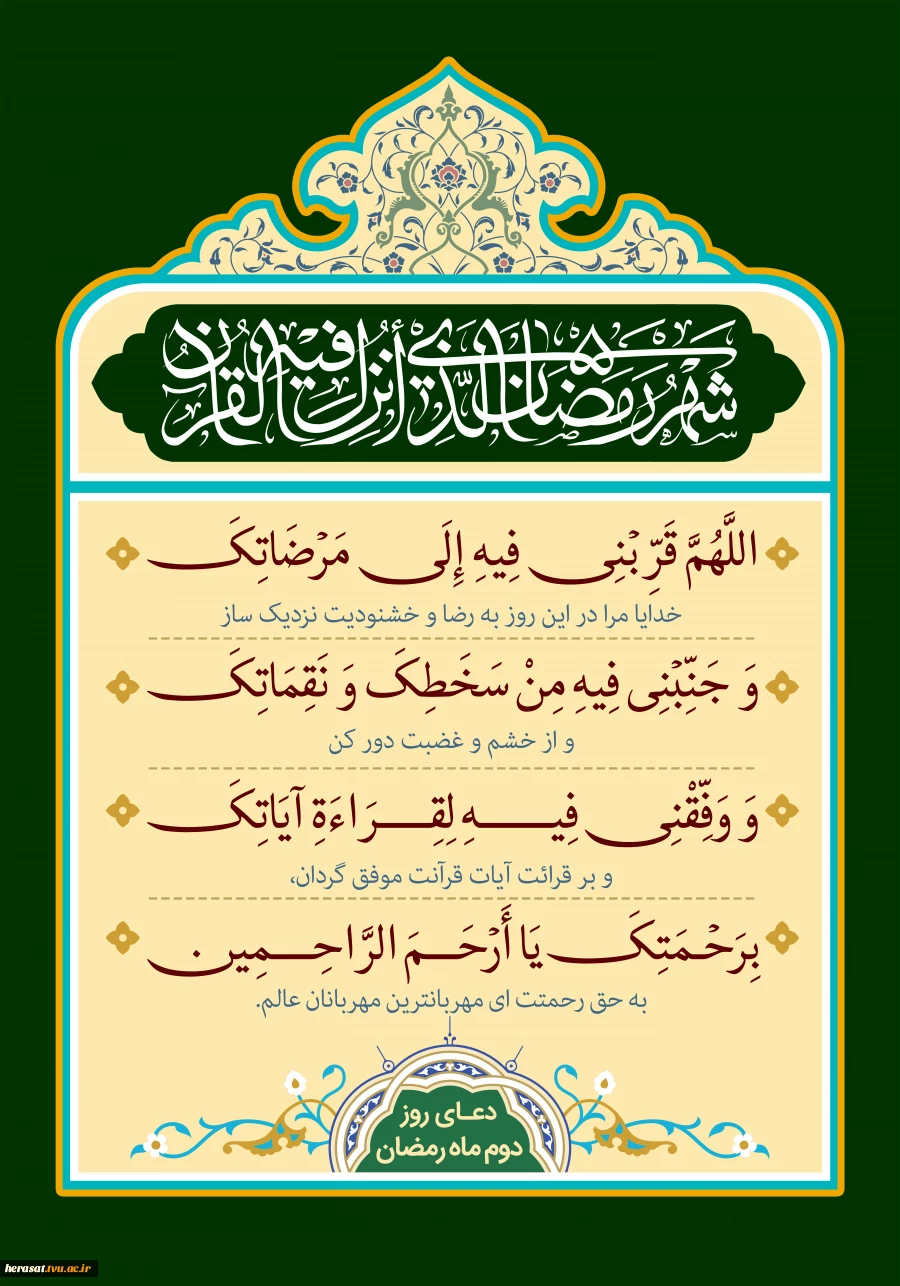 شَهْرُ رَمَضَانَ الَّذِي أُنْزِلَ فِيهِ الْقُرْآنُ
اللَّهُمَّ قَرِّبْنِی فِیهِ إِلَی مَرْضَاتِکَ
خدایا مرا در این روز به رضا و خشنودیت نزدیک ساز
وَ جَنِّبْنِی فِیهِ مِنْ سَخَطِکَ وَ نَقِمَاتِکَ
و از خشم و غضبت دور کن
وَ وَفِّقْنِی فِیهِ لِقِرَاءَةِ آیَاتِکَ
و بر قرائت آیات قرآنت موفق گردان،
بِرَحْمَتِکَ یَا أَرْحَمَ الرَّاحِمِین
به حق رحمتت ای مهربانترین مهربانان عالم.
دعای روز
دوم ماه رمضان
herasat.tvu.ac.ir